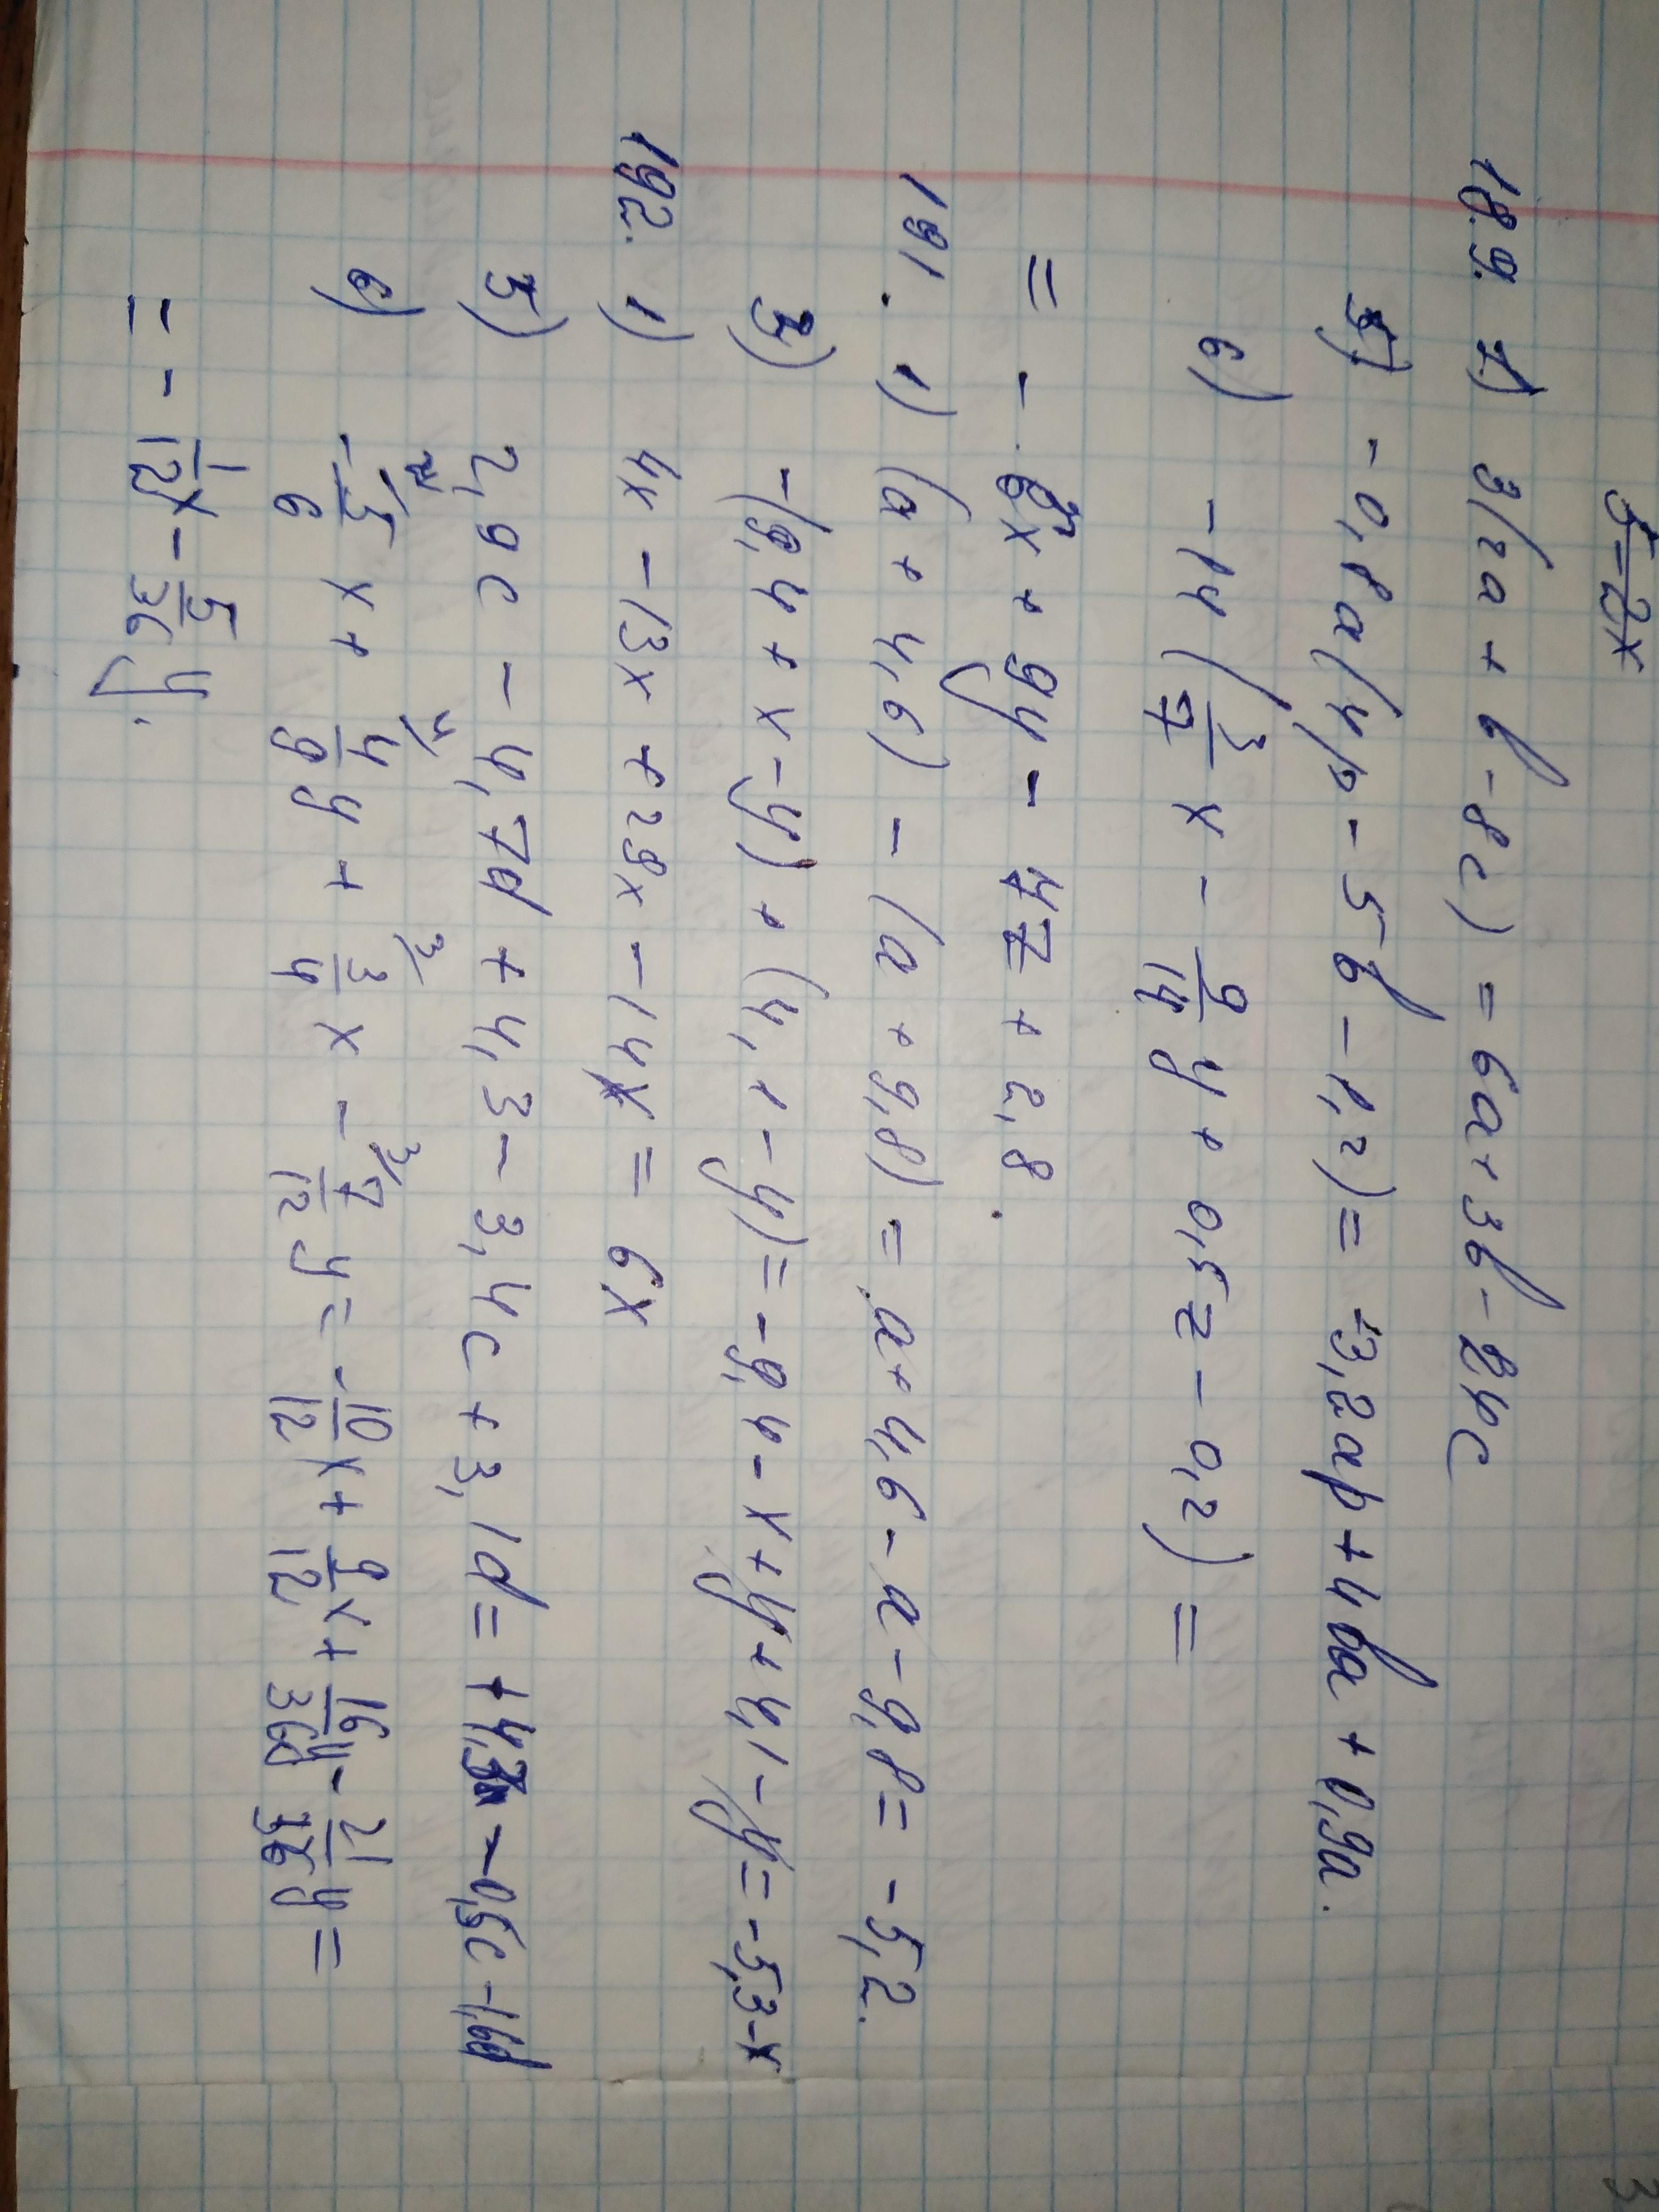 5=2x
189. 1) 3(2a + b - 8c) = 6a + 3b - 24c
5) -0,8a(4p - 5b - 1,2) = -3,2ap + 4ba + 0,9a.
6) -14(3/7 x - 9/14 y + 0,5z - 0,2) =
= -6x + 9y - 7z + 2,8.
191. 1) (a + 4,6) - (a + 9,8) = a + 4,6 - a - 9,8 = -5,2.
3) -(9,4 + x - y) + (4,1 - y) = -9,4 - x + y + 4,1 - y = -5,3 - x
192. 1) 4x - 13x + 29x - 14x = 6x
5) 2,9c - 4,7d + 4,3 - 3,4c + 3,1d = +4,3 - 0,5c - 1,6d
6) -5/6 x + 4/9 y + 3/4 x - 7/12 y = -10/12 x + 9/12 x + 16/36 y - 21/36 y =
= -1/12 x - 5/36 y.